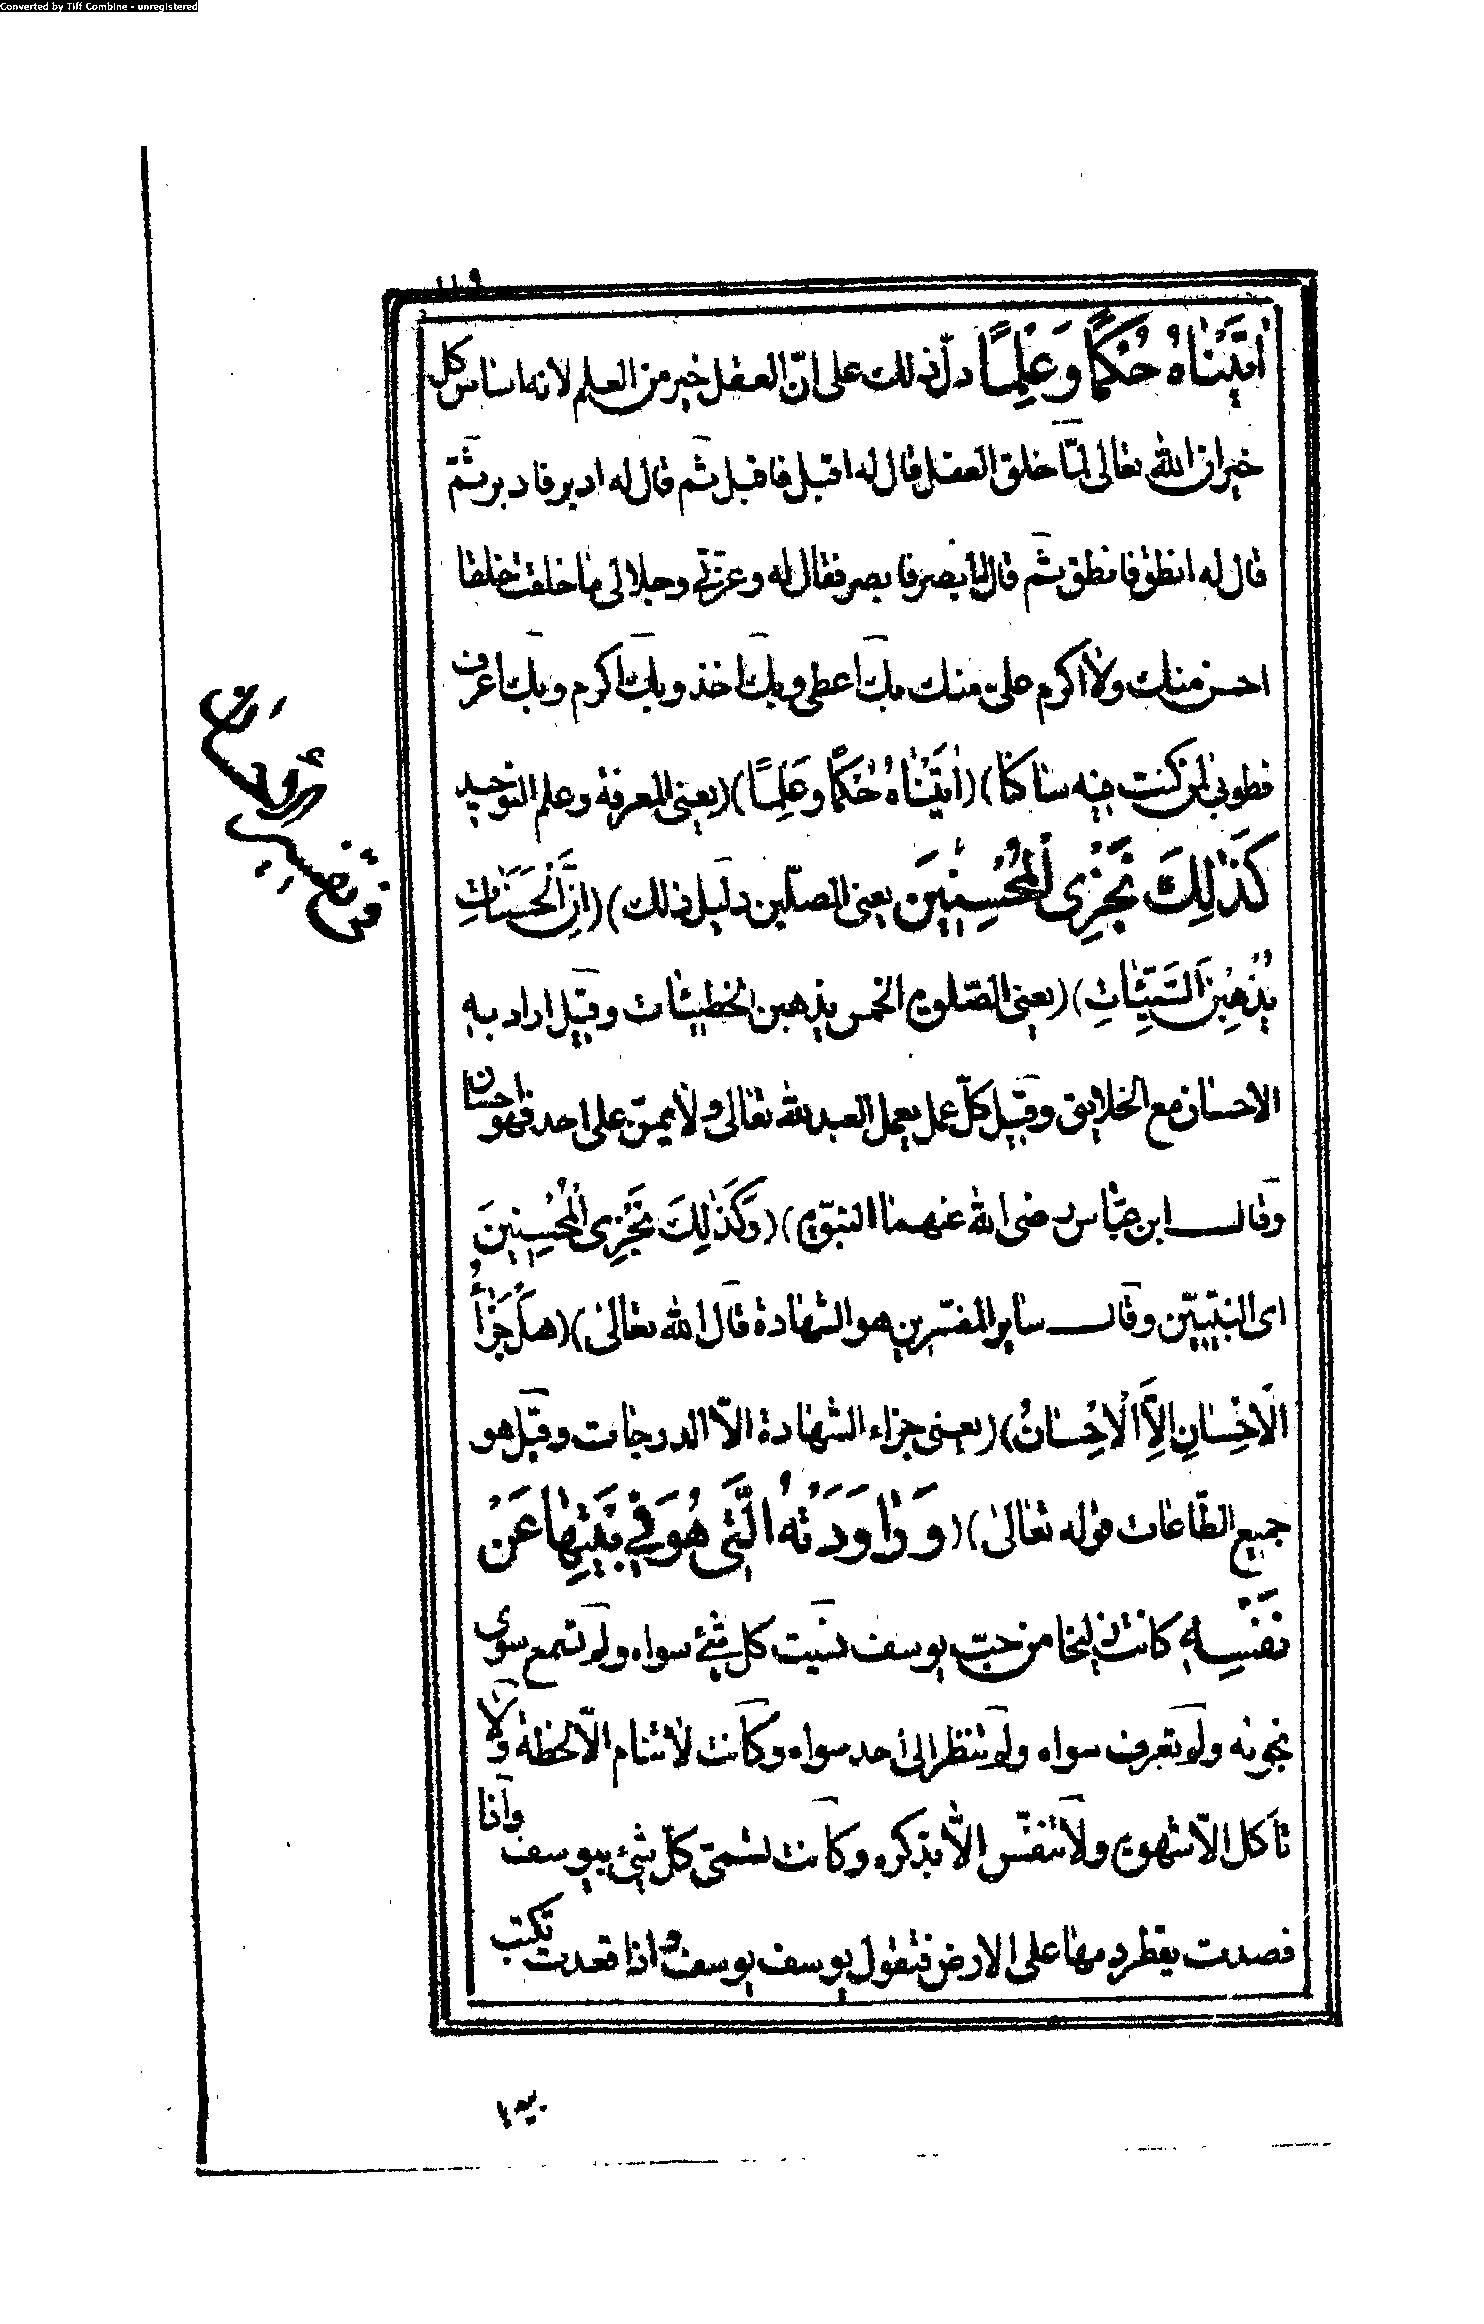 Converted by Tiff Combine - unregistered
١١٩
اٰتَيْنَاهُ حُكْمًا وَعِلْمًا دلّ ذلك على انّ العقل خير من العلم لانه اساس كل
خير ان الله تعالى لمّا خلق العقل قال له اقبل فاقبل ثم قال له ادبر فادبر ثمّ
قال له انطق فانطق ثم قال له ابصر فابصر فقال له وعزتي وجلالى ما خلقت خلقا
احسن منك ولا اكرم علىّ منك بك اعطى وبك اخذ وبك اكرم وبك اعرف
فطوبى لمن كنت فيه ساكنا) (اٰتَيْنَاهُ حُكْمًا وَعِلْمًا) (يعنى المعرفة وعلم التوحيد
كَذٰلِكَ نَجْزِى الْمُحْسِنِينَ يعنى المصلّين دليل ذلك) (اِنَّ الْحَسَنَاتِ
يُذْهِبْنَ السَّيِّئَاتِ) (يعنى الصّلوة الخمس يذهبن الخطيئات وقيل اراد به
الاحسان مع الخلايق وقيل كلّ عمل يعمل العبد لله تعالى ولا يمنّ على احد فهو احسان
وقال ابن عبّاس رضى الله عنهما النبوّة) (وَكَذٰلِكَ نَجْزِى الْمُحْسِنِينَ
اى النبيّين وقال ساير المفسّرين هو الشهادة قال الله تعالىٰ) (هَلْ جَزَاءُ
الْاِحْسَانِ اِلَّا الْاِحْسَانُ) (يعنى جزاء الشهادة الاّ الدرجات وقيل هو
جميع الطّاعات قوله تعالىٰ) (وَرَاوَدَتْهُ الَّتِى هُوَ فِي بَيْتِهَا عَنْ
نَفْسِهِ كانت زليخا من حبّ يوسف نسيت كل شئ سواه ولم تسمع سوى
نجوته ولم تعرف سواه ولم تنظر الى احد سواه وكانت لا تنام الاّ لحظة ولا
تاكل الاّ شهوة ولا تتنفّس الاّ بذكره وكانت تسمّى كلّ شئ بيوسف واذا
فصدت يقطر دمها على الارض فتقول يوسف يوسف واذا قعدت تكتب